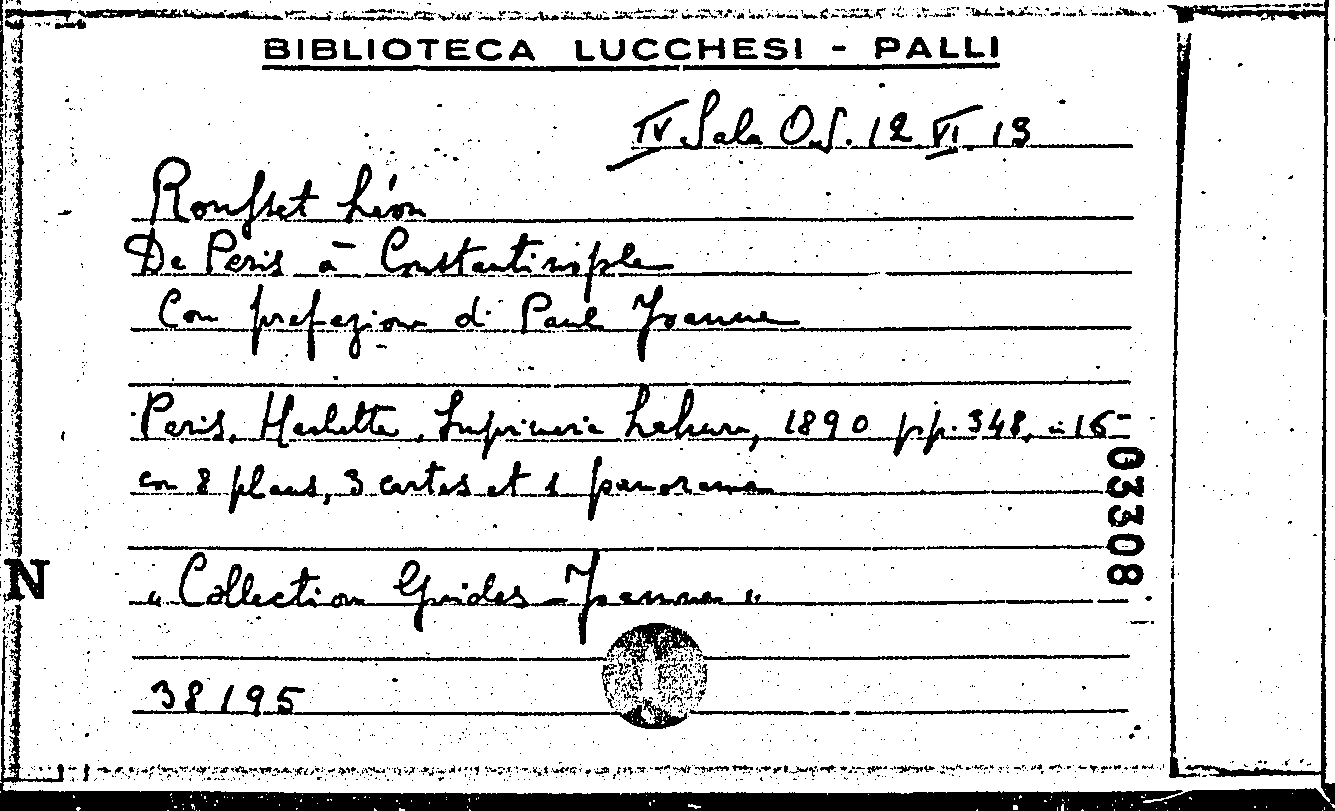 BIBLIOTECA LUCCHESI - PALLI
IV Sala O.S. 12 VI. 13
Rousset Léon
De Paris à Constantinople
Con prefazione di Paul Joanne
Paris, Hachette, Imprimerie Lahure, 1890 pp. 348, in 16°
con 8 plans, 3 cartes et 1 panorama
03308
N
"Collection Guides-Joanne"
38195